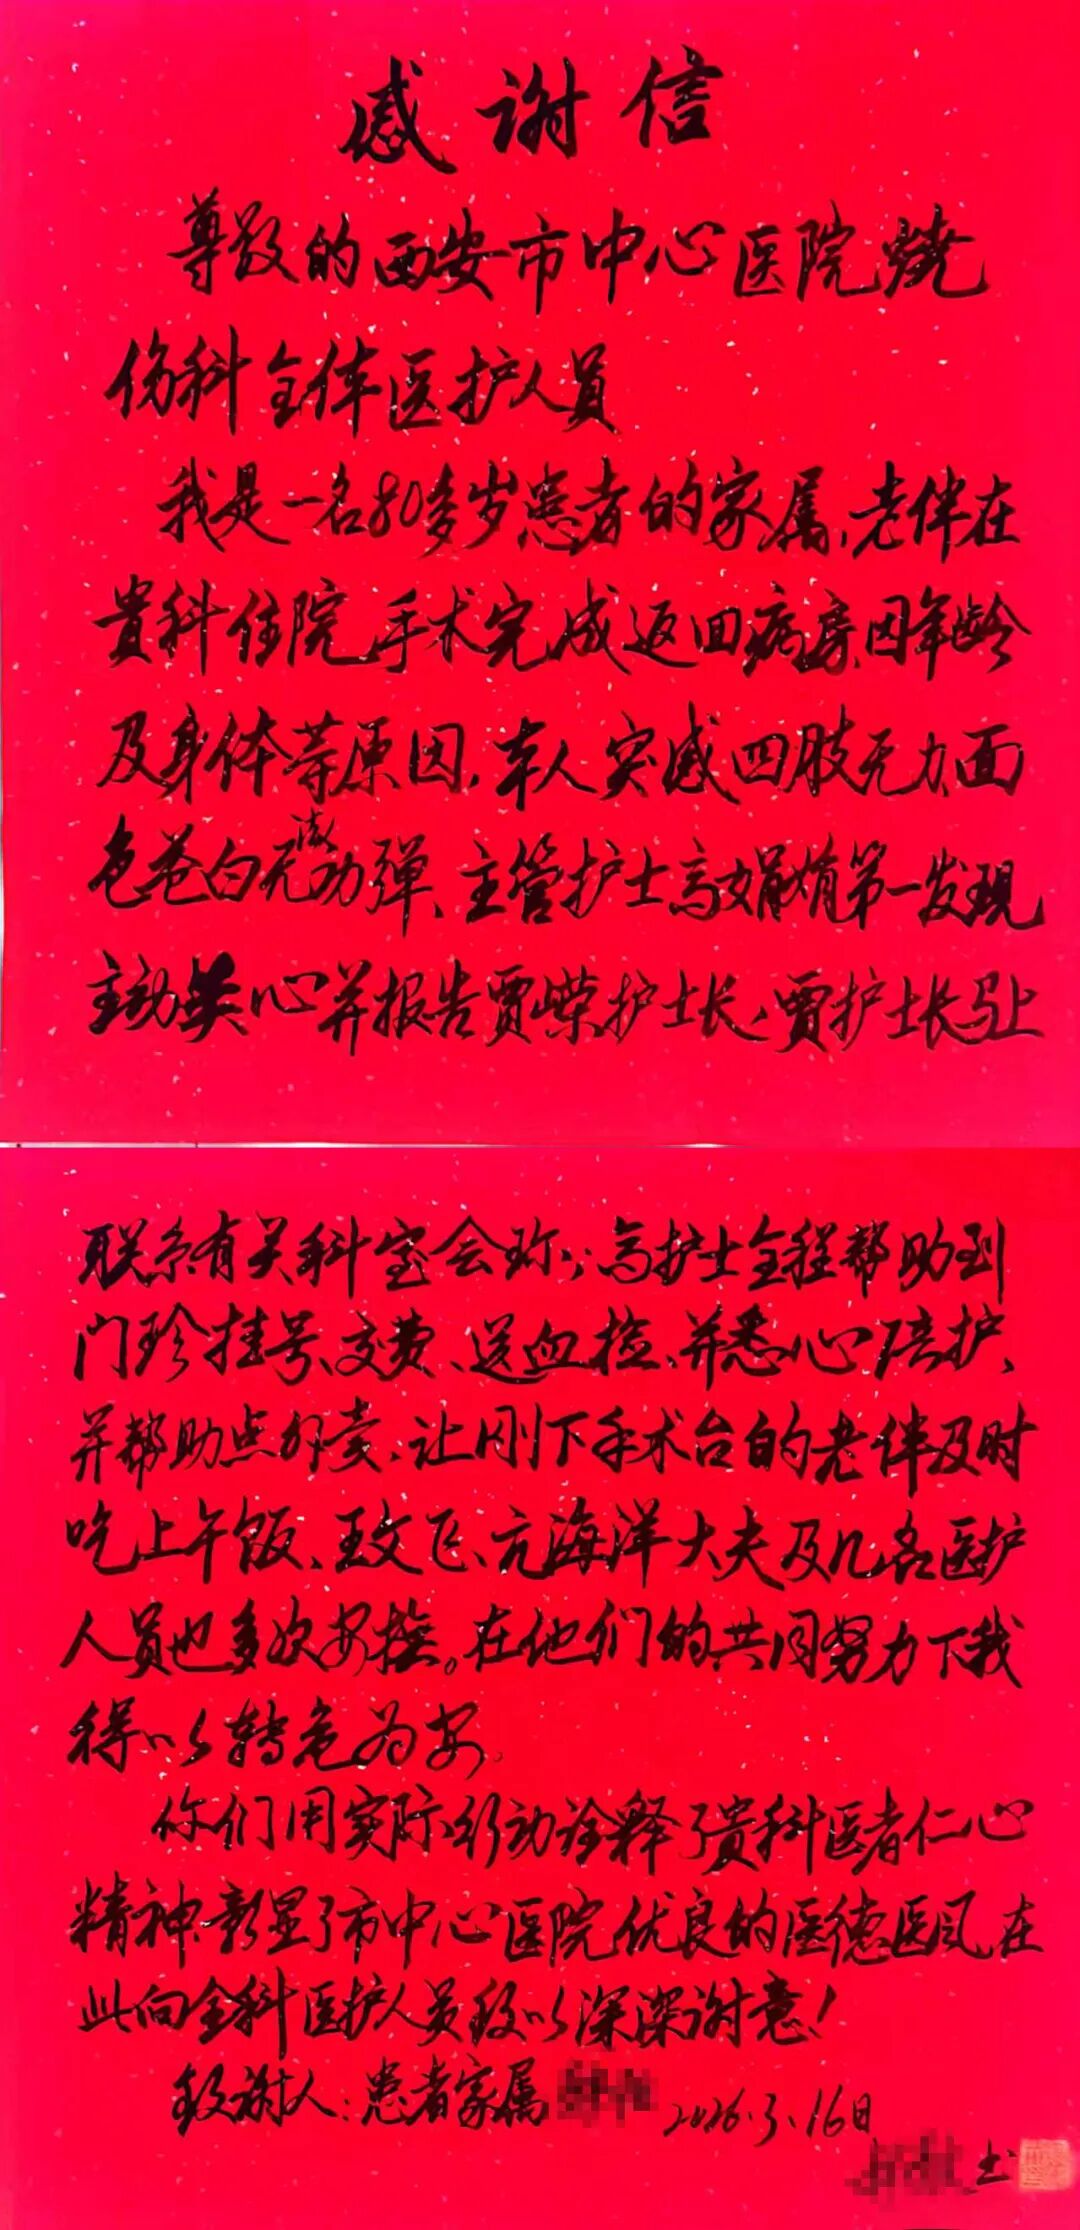 感谢信
尊敬的西安市中心医院烧
伤科全体医护人员
我是一名80多岁患者的家属,老伴在
贵科住院手术完成返回病房,因年龄
及身体等原因,本人突感四肢无力、面
色苍白无法动弹、主管护士高娟娟第一发现
主动关心并报告贾嵘护士长,贾护士长马上
联系有关科室会诊;高护士全程帮助到
门诊挂号、交费、送血检、并悉心陪护、
并帮助点外卖、让刚下手术台的老伴及时
吃上午饭、王文飞、亢海洋大夫及几名医护
人员也多次安抚。在他们的共同努力下我
得以转危为安。
你们用实际行动诠释了贵科医者仁心
精神,彰显了市中心医院优良的医德医风在
此向全科医护人员致以深深谢意!
致谢人:患者家属 2026.3.16日